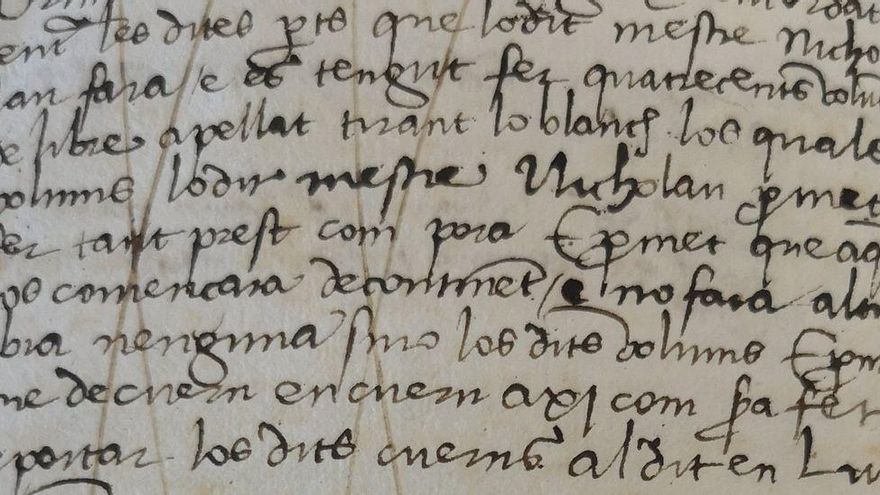 les dites pts que lodit mestre Nicho
lan fara / e es tengut fer quatrecents volu
de libre apellat tirant lo blanch los quals
volums lodit mestre Nicholan pmet
fer tant prest com pora E pmet que aq
comencara decontinent / e no fara altr
bra nenguna sino los dits volums E pm
de cuern en cuern axi com pa fer
portar los dits cuerns al dit en Lu